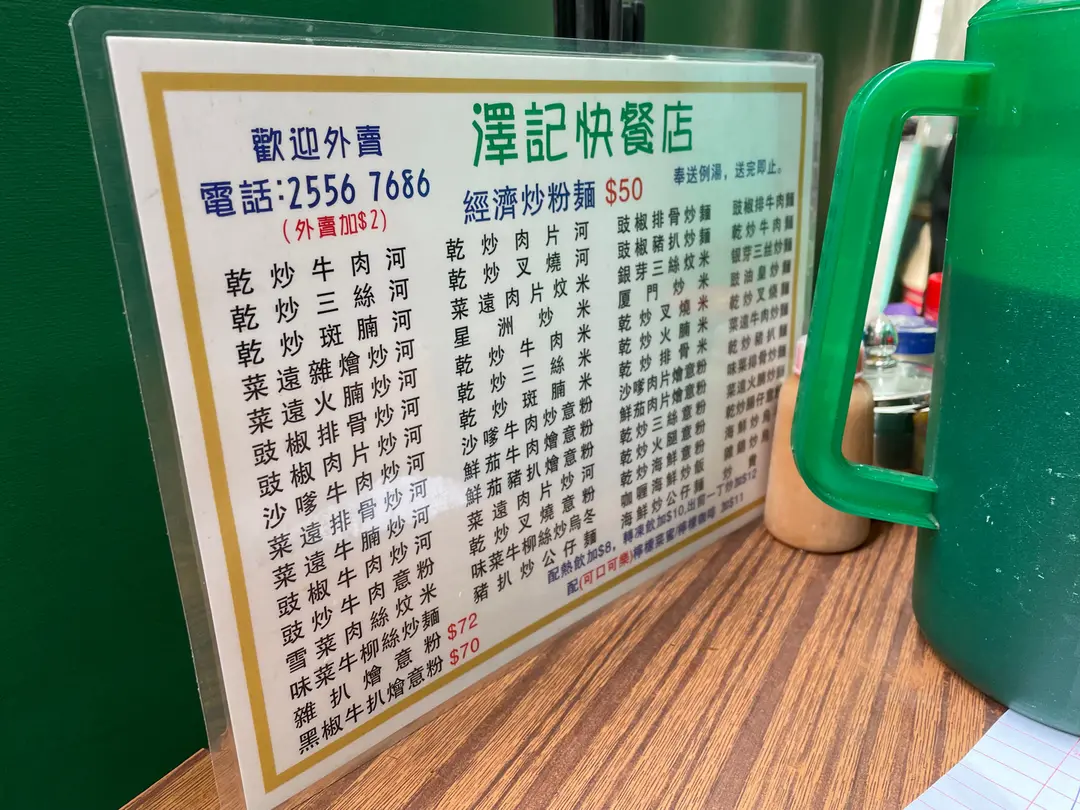 澤記快餐店
歡迎外賣
電話:2556 7686
(外賣加$2)
經濟炒粉麵 $50
奉送例湯，送完即止。
乾炒牛肉河
乾炒三絲河
乾炒斑腩河
菜遠雜燴炒河
菜遠火腩炒河
豉椒排骨炒河
豉椒肉片炒河
沙嗲牛肉炒河
菜遠排骨炒河
菜遠牛腩炒河
豉椒牛肉炒河
豉炒牛肉意粉
雪菜肉絲炆米
味菜牛柳絲炒麵
雜扒燴意粉 $72
黑椒牛扒燴意粉 $70
乾炒肉片河
乾炒叉燒河
菜遠肉片炆米
星洲炒米
乾炒牛肉米
乾炒三絲米
乾炒斑腩米
沙嗲牛肉炒意粉
鮮茄牛肉燴意粉
鮮茄豬扒燴意粉
菜遠肉片炒河
乾炒叉燒意粉
味菜牛柳絲炒烏冬
豬扒炒公仔麵
豉椒排骨炒麵
豉椒豬扒炒麵
銀芽三絲炆米
厦門炒米
乾炒叉燒米
乾炒火腩米
乾炒排骨米
沙嗲肉片燴意粉
鮮茄肉片燴意粉
乾炒三絲意粉
乾炒火腿意粉
乾炒海鮮意粉
咖喱海鮮炒飯
海鮮炒公仔麵
豉椒排牛肉麵
乾炒牛肉麵
銀芽三絲炒麵
豉油皇炒麵
乾炒叉燒麵
菜遠牛肉炒麵
乾炒豬扒麵
味菜排骨炒麵
菜遠火腩炒麵
乾炒腸仔意
海鮮炒烏
雜錦炒烏
配熱飲加$8，轉凍飲加$10,出前一丁炒加$12
配(可口可樂)檸檬菜蜜/檸檬咖啡 加$11